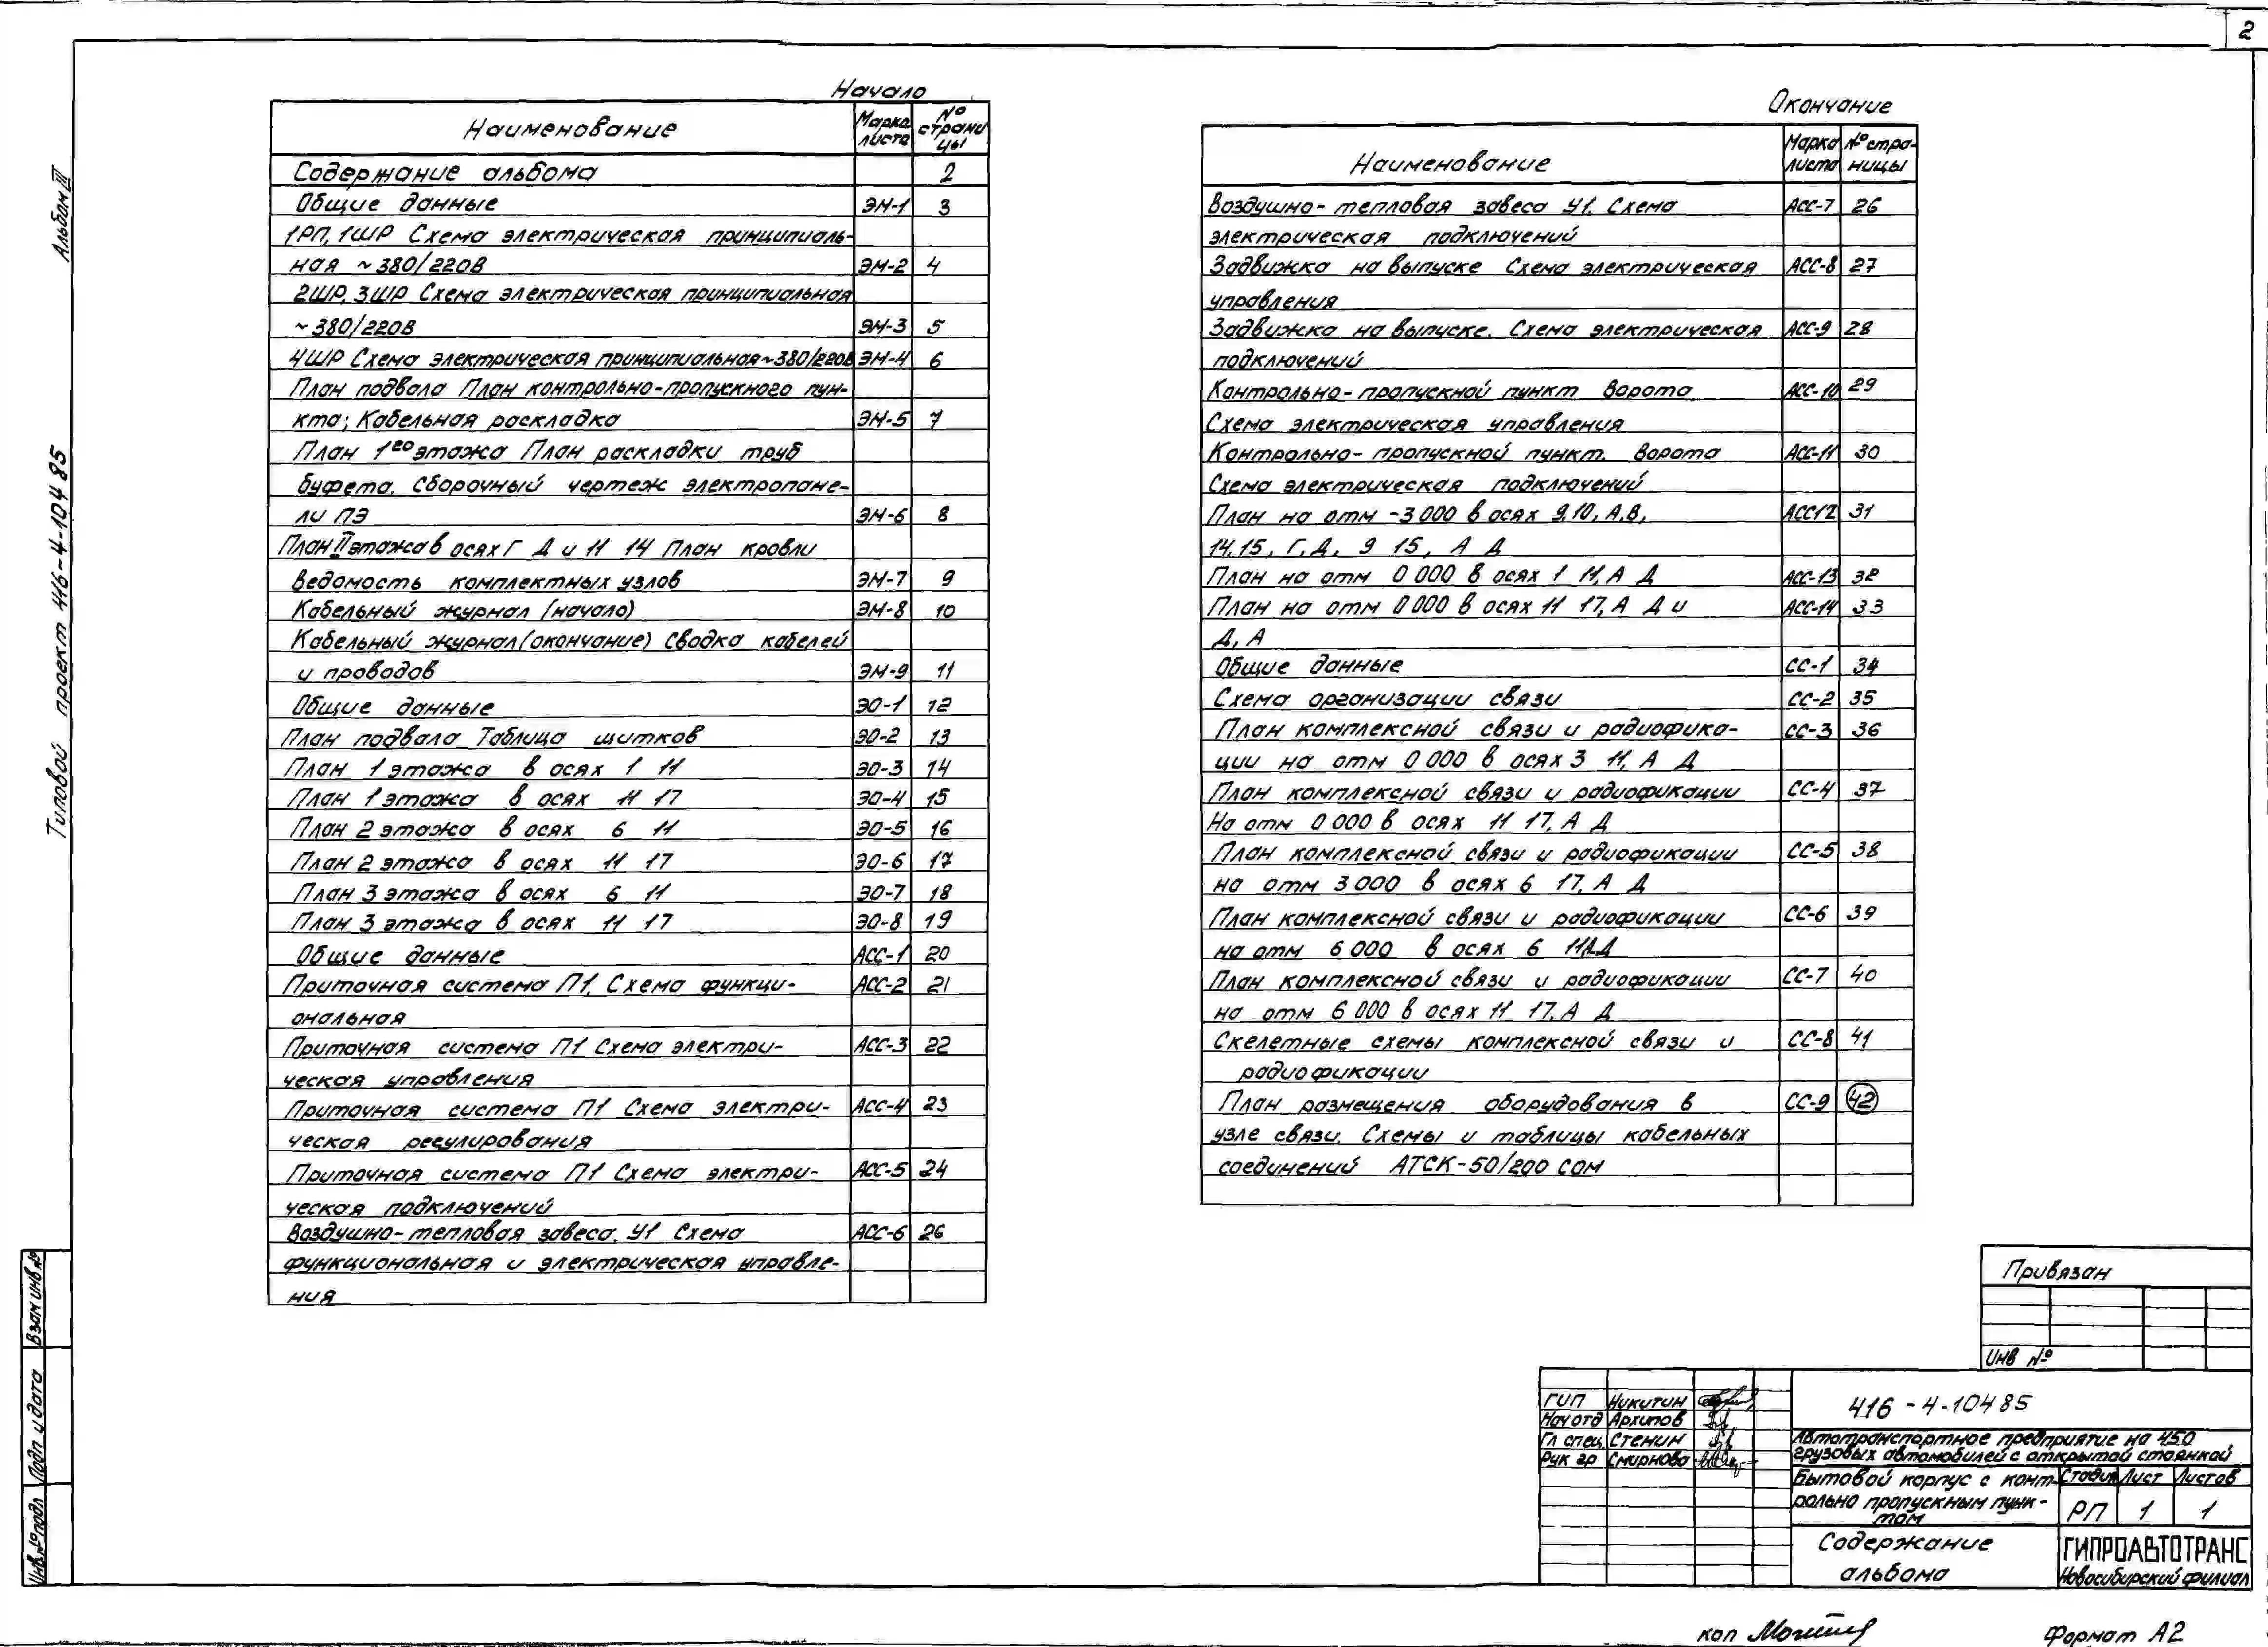 2
Альбом III
Типовой проект 416-4-104 85
Взам инв №
Подп и дата
Инв № подл
Начало
Наименование Марка листа № страницы
Содержание альбома 2
Общие данные ЭМ-1 3
1РП, 1ШР Схема электрическая принципиаль-
ная ~380/220В ЭМ-2 4
2ШР, 3ШР Схема электрическая принципиальная
~380/220В ЭМ-3 5
4ШР Схема электрическая принципиальная~380/220В ЭМ-4 6
План подвала План контрольно-пропускного пун-
кта; Кабельная раскладка ЭМ-5 7
План 1го этажа План раскладки труб
буфета. Сборочный чертеж электропане-
ли ПЭ ЭМ-6 8
План II этажа в осях Г Д и 11 14 План кровли
Ведомость комплектных узлов ЭМ-7 9
Кабельный журнал (начало) ЭМ-8 10
Кабельный журнал (окончание) Сводка кабелей
и проводов ЭМ-9 11
Общие данные ЭО-1 12
План подвала Таблица щитков ЭО-2 13
План 1 этажа в осях 1 11 ЭО-3 14
План 1 этажа в осях 11 17 ЭО-4 15
План 2 этажа в осях 6 11 ЭО-5 16
План 2 этажа в осях 11 17 ЭО-6 17
План 3 этажа в осях 6 11 ЭО-7 18
План 3 этажа в осях 11 17 ЭО-8 19
Общие данные АСС-1 20
Приточная система П1. Схема функци-
ональная АСС-2 21
Приточная система П1 Схема электри- АСС-3 22
ческая управления
Приточная система П1 Схема электри- АСС-4 23
ческая регулирования
Приточная система П1 Схема электри- АСС-5 24
ческая подключений
Воздушно-тепловая завеса. У1 Схема АСС-6 26
функциональная и электрическая управле-
ния
Окончание
Наименование Марка листа № страницы
Воздушно-тепловая завеса У1. Схема АСС-7 26
электрическая подключений
Задвижка на выпуске Схема электрическая АСС-8 27
управления
Задвижка на выпуске. Схема электрическая АСС-9 28
подключений
Контрольно-пропускной пункт Ворота АСС-10 29
Схема электрическая управления
Контрольно-пропускной пункт. Ворота АСС-11 30
Схема электрическая подключений
План на отм -3 000 в осях 9,10, А,В, АСС12 31
14,15, Г,Д, 9 15, А Д
План на отм 0 000 в осях 1 11, А Д АСС-13 32
План на отм 0 000 в осях 11 17, А Д и АСС-14 33
Д, А
Общие данные СС-1 34
Схема организации связи СС-2 35
План комплексной связи и радиофика- СС-3 36
ции на отм 0 000 в осях 3 11, А Д
План комплексной связи и радиофикации СС-4 37
На отм 0 000 в осях 11 17, А Д
План комплексной связи и радиофикации СС-5 38
на отм 3 000 в осях 6 17, А Д
План комплексной связи и радиофикации СС-6 39
на отм 6 000 в осях 6 11,А Д
План комплексной связи и радиофикации СС-7 40
на отм 6 000 в осях 11 17, А Д
Скелетные схемы комплексной связи и СС-8 41
радиофикации
План размещения оборудования в СС-9 42
узле связи. Схемы и таблицы кабельных
соединений АТСК-50/200 СОМ
Привязан
Инв №
ГИП Никитин
Нач отд Архипов
Гл спец. Стенин
Рук гр Смирнова
416-4-104 85
Автотранспортное предприятие на 450
грузовых автомобилей с открытой стоянкой
Бытовой корпус с конт-
рольно пропускным пунк-
том
Стадия Лист Листов
РП 1 1
Содержание
альбома
ГИПРОАВТОТРАНС
Новосибирский филиал
коп
Формат А2